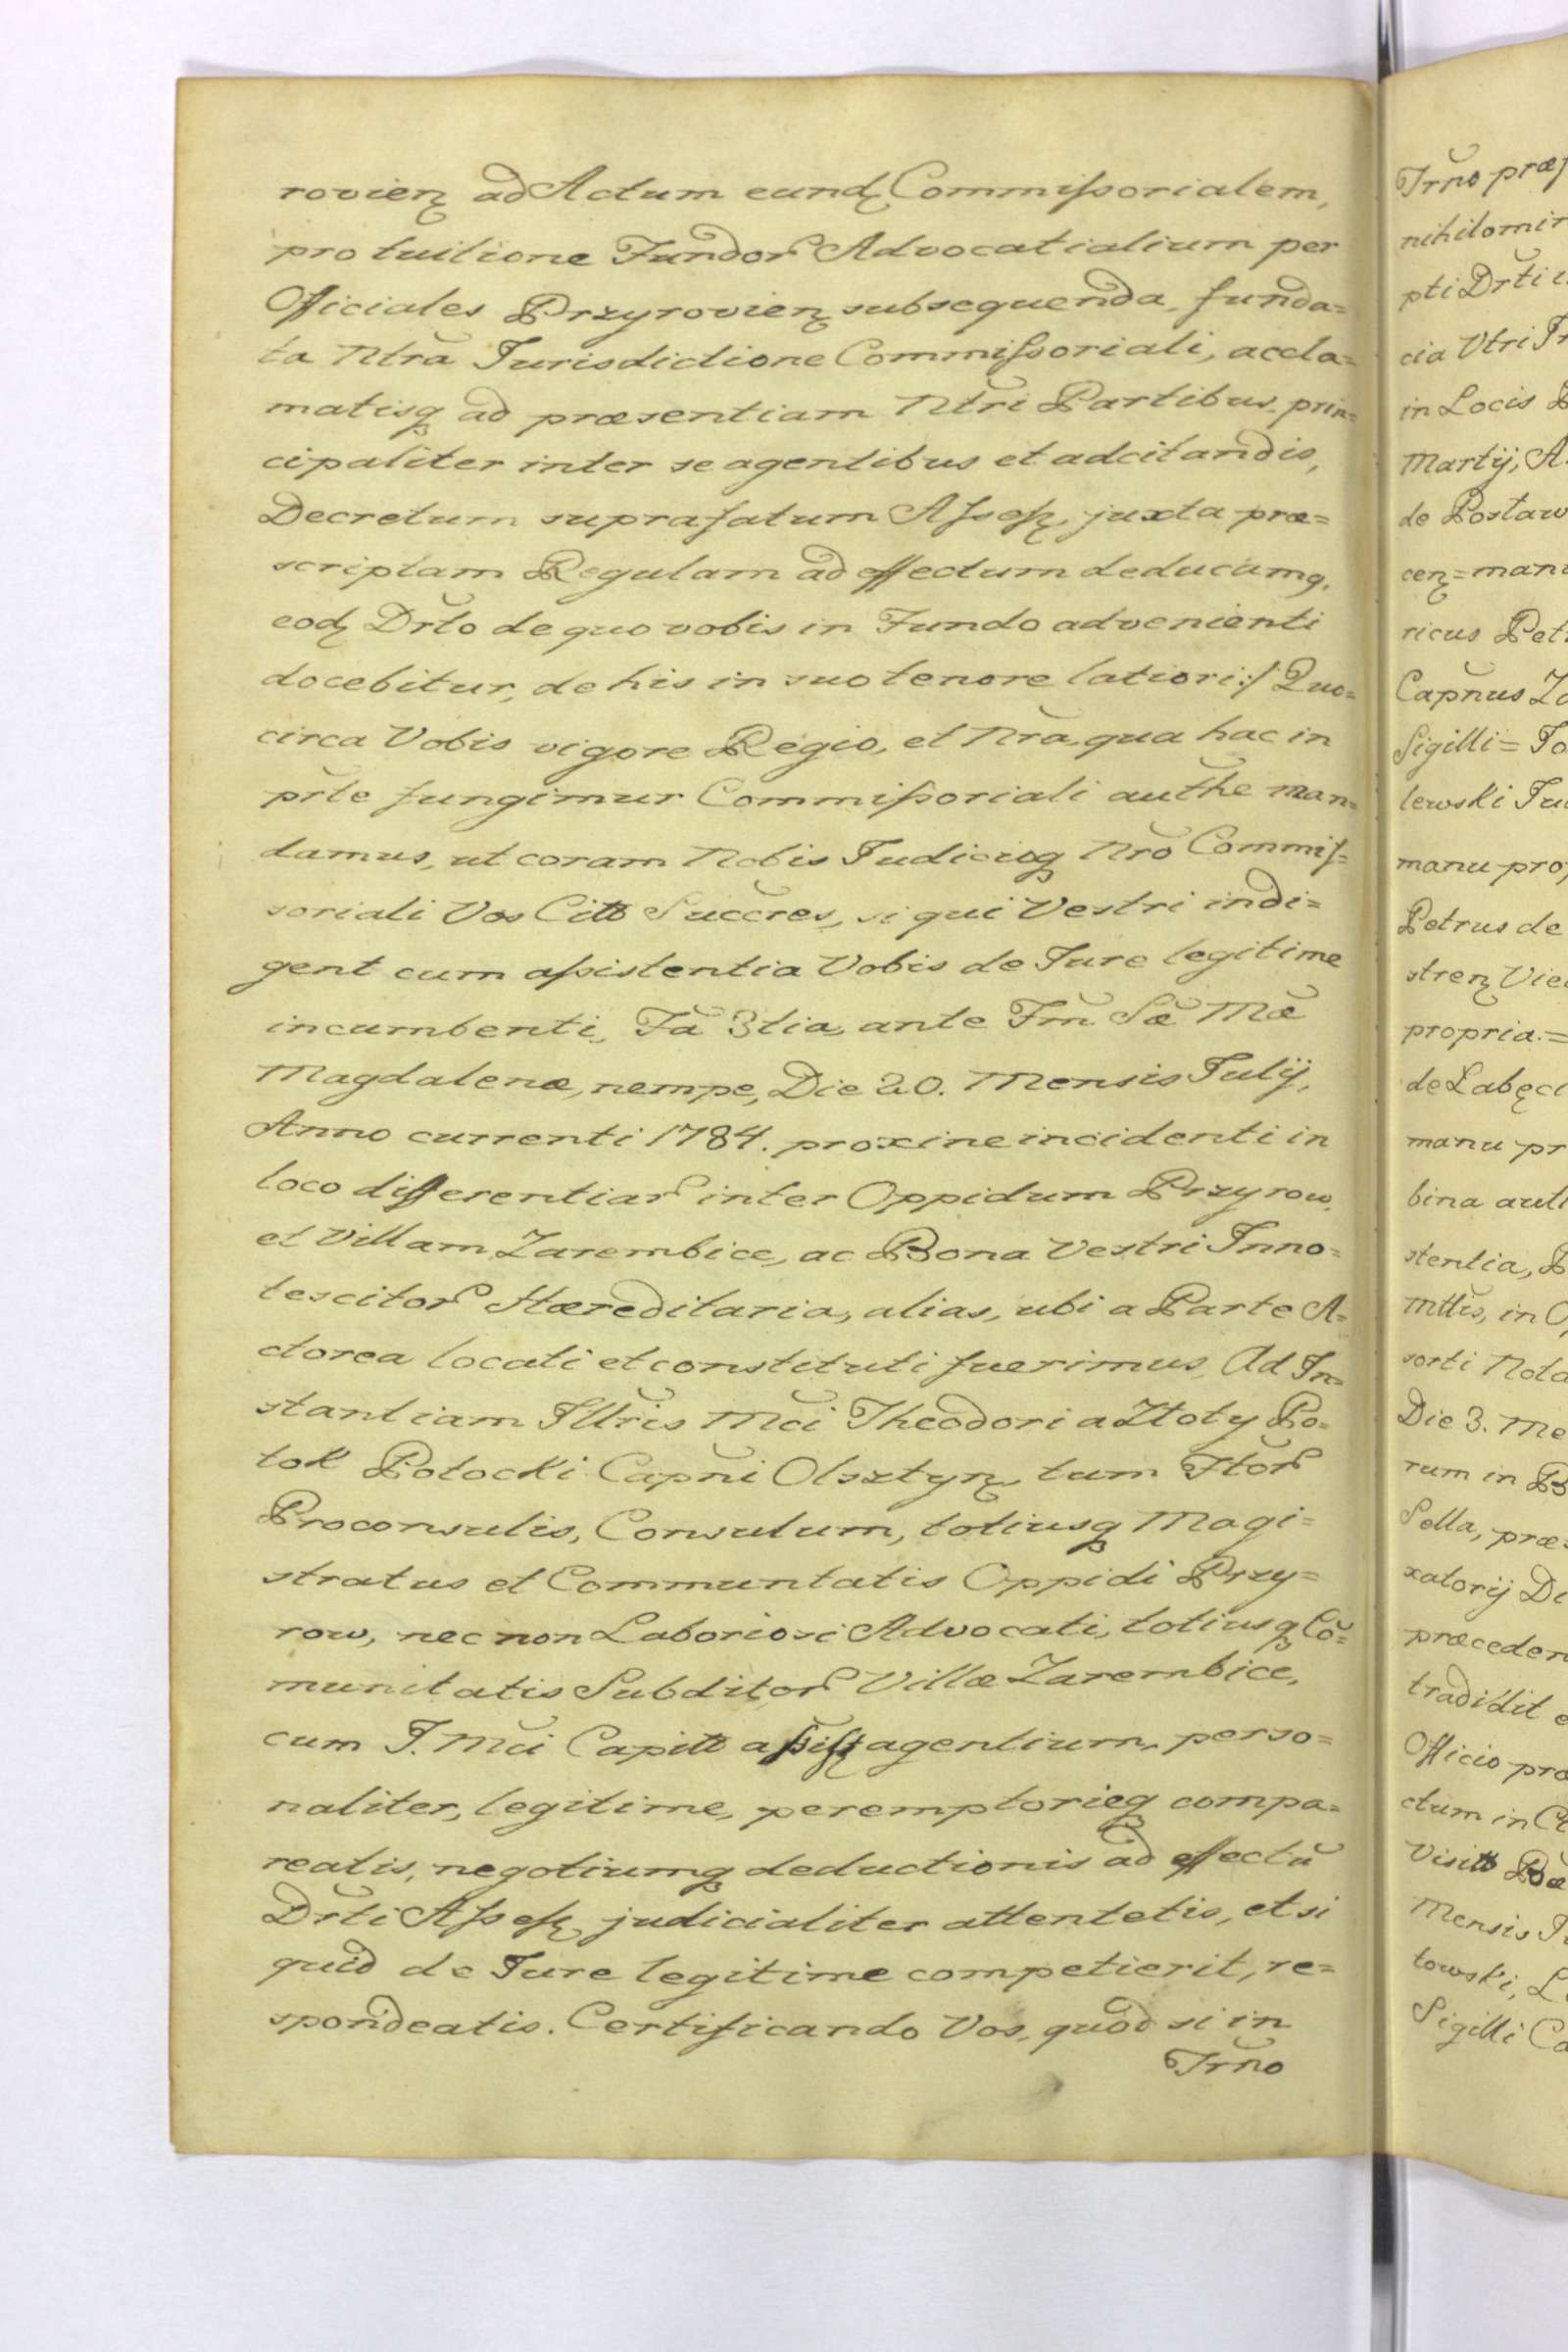 rovien ad Actum eund Commissorialem,
pro tuitione Fundor Advocatialium per
Officiales Przyrovien subsequenda, funda=
ta Ntra Jurisdictione Commissoriali, accla=
matisq ad præsentiam Ntri Partibus prin=
cipaliter inter se agentibus et adcitandis,
Decretum suprafatum Assess, juxta præ=
scriptam Regulam ad effectum deducamq,
eod Drto de quo vobis in Fundo advenienti
docebitur, de his in suo tenore latiori:/ Quo=
circa Vobis vigore Regio, et Nra, qua hac in
prte fungimur Commissoriali authe man=
damus, ut coram Nobis Judicioq Nro Commis=
soriali Vos Citt Succres, si qui Vestri indi=
gent cum assistentia Vobis de Jure legitime
incumbenti, Fa 3tia ante Fm Sæ Mæ
Magdalenæ, nempe, Die 20. Mensis Julij,
Anno currenti 1784. proxine incidenti in
loco differentiar inter Oppidum Przyrow,
et Villam Zarembice, ac Bona Vestri Inno=
tescitor Hæreditaria, alias, ubi a Parte A=
ctorea locati et constituti fuerimus, Ad In=
stantiam Illris Mci Theodori a Złoty Po=
tok Potocki Capni Olsztyn, tum Ftor
Proconsulis, Consulum, totiusq Magi=
stratus et Communtatis Oppidi Przy=
row, nec non Laboriosi Advocati, totiusq Co=
munitatis Subditor Villæ Zarembice,
cum J. Mci Capitt assist agentium, perso=
naliter, legitime, peremptorieq compa=
reatis, negotiumq deductionis ad effectu
Drti Assess, judicialiter attentetis, et si
quid de Jure legitime competierit, re=
spondeatis. Certificando Vos, quod si in
Trno
Trno præs
nihilomin
pti Drti
cia Vtri
in Locis
Martij, A.
de Postaw
cen=manu
ricus Pet
Capnus Za
Sigilli= Jo
lewski Ju
manu pro
Petrus de
stren Vie
propria.=
de Łabęc
manu pr
bina aut
stentia, B
Mttis, in O
sorti Nota
Die 3. Me
rum in B
Sella, præ
xatorij De
præceden
tradidit e
Officio præ
ctum in C
Visitt
Mensis J
towski, L
Sigilli Ca